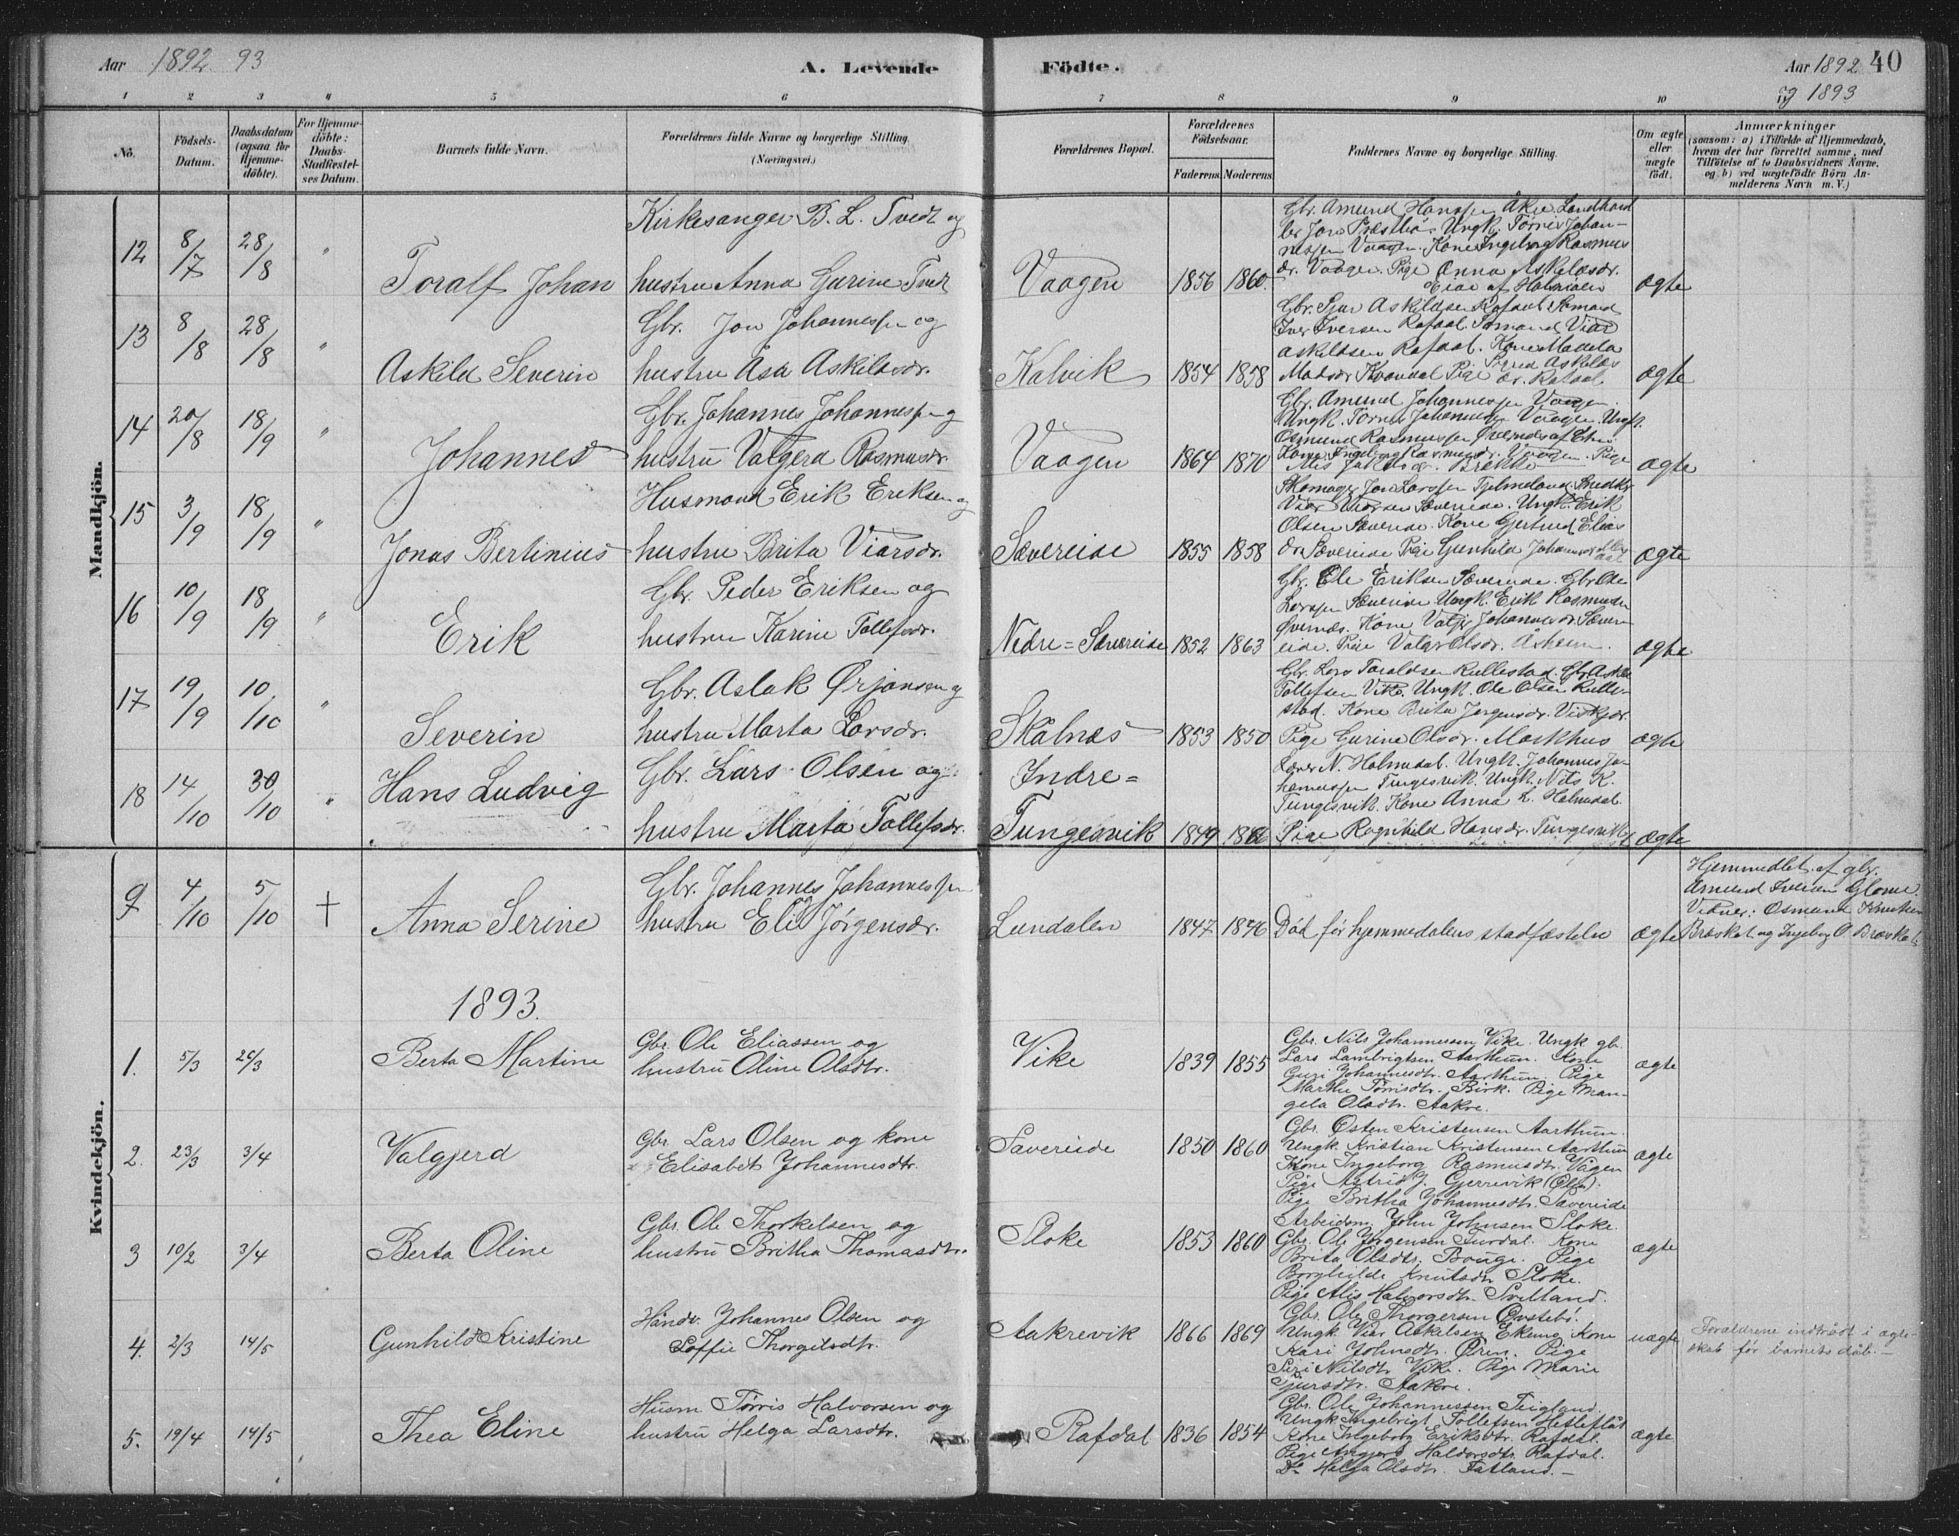 Aar 1892 93
A. Levende
Födte.
Aar 1892 40
og 1893
1 2 3 4 5 6 7 8 9 10 11
No.
Födsels-
Datum.
Daabsdatum
(ogsaa for
Hjemme-
döbte).
For Hjemme-
döbte:
Daabs-
Stadfæstel-
ses Datum.
Barnets fulde Navn.
Forældrenes fulde Navne og borgerlige Stilling.
(Næringsvei.)
Forældrenes Bopæl.
Forældrenes
Födselsaar.
Faderens. Moderens.
Faddernes Navne og borgerlige Stilling.
Om ægte
eller
uægte
födt.
Anmærkninger
(saasom: a) i Tilfælde af Hjemmedaab,
hvem der har forrettet samme, med
Tilföielse af to Daabsvidners Navne,
og b) ved uægtefödte Börn An-
melderens Navn m. V.)
Mandkjön.
12 8/7 28/8 "
Toralf Johan
Kirkesanger B. L. Tvedt og
hustru Anna Gurine Tvedt
Vaagen 1856 1860.
Gbr. Amund Hanssen Åkre. Landhand
ler Jon Ungk. Tørres Johan-
nessen Vaagen. Kone Ingeborg Rasmus
dr. Vaagen. Pige Anna Askildsdr.
Eide af Holmedalen
ægte
13 8/8 28/8 "
Askild Severin
Gbr. Jon Johannessen og
hustru Åsa Askildsdr.
Kalvik 1854 1858
Gbr. Sjur Askildsen Rafdal Sømand
Iver Iversen Rafdal. Sømand Viar
Askildsen Rafdal. Kone Madela
Madsdr. Kvandal Pige Sigrid Askilds
dr. Rafdal
ægte
14 20/8 18/9 "
Johannes
Gbr. Johannes Johannessen og
hustru Valgerd Rasmusdr.
Vaagen 1864 1870
Gbr. Amund Johannessen Vaagen.
Ungk. Tørres Johannessen Vaagen. Ungk.
Osmund Rasmussen Øvernes af Etne
Kone Ingeborg Rasmusdr. Vaagen. Pige
Alis Jakobsdr. Brekke
ægte
15 3/9 18/9 "
Jonas Bertinius
Husmand Erik Eriksen og
hustru Brita Viarsdr.
Sævereide 1855 1858
Skomager Jon Larssen Tjelmeland. Snedkr
Viar Viarsen Sævereide. Ungk. Erik
Olsen Sævereide. Kone Gjertrud Elias
dr. Sævereide Pige Gunhild Johannesdr
ægte
16 10/9 18/9 "
Erik
Gbr. Peder Eriksen og
hustru Karine Tollefsdr.
Nedre = Sævereide 1852 1863
Gbr. Ole Eriksen Sævereide. Gbr. Ole
Larssen Sævereide Ungk. Erik Rasmussen
Øvernes. Kone Valgj Johannesdr. Sæver-
eide. Pige Valgr Olsdr. Åsheim.
ægte
17 19/9 10/10 "
Severin
Gbr. Aslak Ørjansen og
hustru Marta Larsdr.
Skålnæs 1853 1850
Gbr. Lars Taraldsen Rullestad. Gbr. Aslak
Tollefsen Vike. Ungk. Ole Olsen Rulle-
stad. Kone Brita Jorgensdr. Vidkjær.
Pige Gurine Olsdr. Markhus
ægte
18 14/10 30/10 "
Hans Ludvig
Gbr. Lars Olsen og
hustru Marta Tollefsdr.
Indre =
Tungesvik 1849
Lærer N. Holmedal. Ungk. Johannes Jo-
hannessen Tungesvik. Ungk. Nils K.
Tungesvik. Kone Anna L. Holmedal.
Pige Ragnhild Hansdr. Tungesvik
ægte
Kvindekjön.
9 4/10 5/10 +
Anna Serine
Gbr. Johannes Johannessen
og
hustru Eli Jørgensdr.
Lundalen 1847
Død før hjemmedåbens stadfæstelse
ægte
Hjemmedöbt af gbr.
Amund Iversen
Vidner: Osmund Knutsen
Bråskat og Ingeborg O. Bråskat
1893.
1. 5/3 26/3
Berta Martine
Gbr. Ole Eliassen og
hustru Oline Olsdtr.
Vike 1839 1855
Gbr. Nils Johannessen Vike. Ungk gbr.
Lars Lambrigtsen Aarthun. Kone
Guri Johannesdtr. Aarthun. Pige
Martha Tørrisdtr. Birk. Pige Man-
gela Olsdtr. Aakre.
ægte
2. 23/3 3/4
Valgjerd
Gbr Lars Olsen og kone
Elisabet Johannesdtr.
Savereide 1850 1860
Gbr. Østen Kristensen Aarthun.
Ungk. Kristian Kristensen Aarthun
Kone Ingeborg Rasmusdtr. Vågen
Pige Astrid J. Gjerrevik (Ølen).
Pige Britha Johannesdtr. Savereide
ægte
3 10/2 3/4
Berta Oline
Gbr. Ole Thorkelsen og
hustru Britha Thomasdtr.
Stoke 1853 1860
Arbeidsm. John Johnsen Stoke.
Gbr. Ole Jørgensen Furdal. Kone
Brita Olsdtr. Bauge. Pige
Borghilde Knutsdtr Stoke.
Pige Alis Halvorsdtr. Svelland.
ægte
4. 2/3 14/5
Gunhild Kristine
Håndv. Johannes Olsen og
Soffie Thorgilsdtr.
Aakrevik 1866 1869
Gbr. Ole Thorgersen Øvstebø.
Ungk. Viar Askelsen Ekung Kone
Kari Johnsdtr. Øren. Pige
Siri Nilsdtr. Vike. Pige Marie
Sjursdtr. Aakre.
uægte
Foraldrene indtrådt i ægte-
skab før barnets dåb. —
5. 19/4 14/5
Thea Eline
Husm Tørris Halvorsen og
hustru Helga Larsdtr.
Rafdal 1836 1854
Gbr. Ole Johannessen Teigland.
Ungk Ingebrigt Tollefsen Hetleflåt
Kone Ingeborg Eriksdtr. Rafdal.
Pige Angerd Haldorsdtr. Rafdal.
Do Helga Olsdtr. Fatland. —
ægte